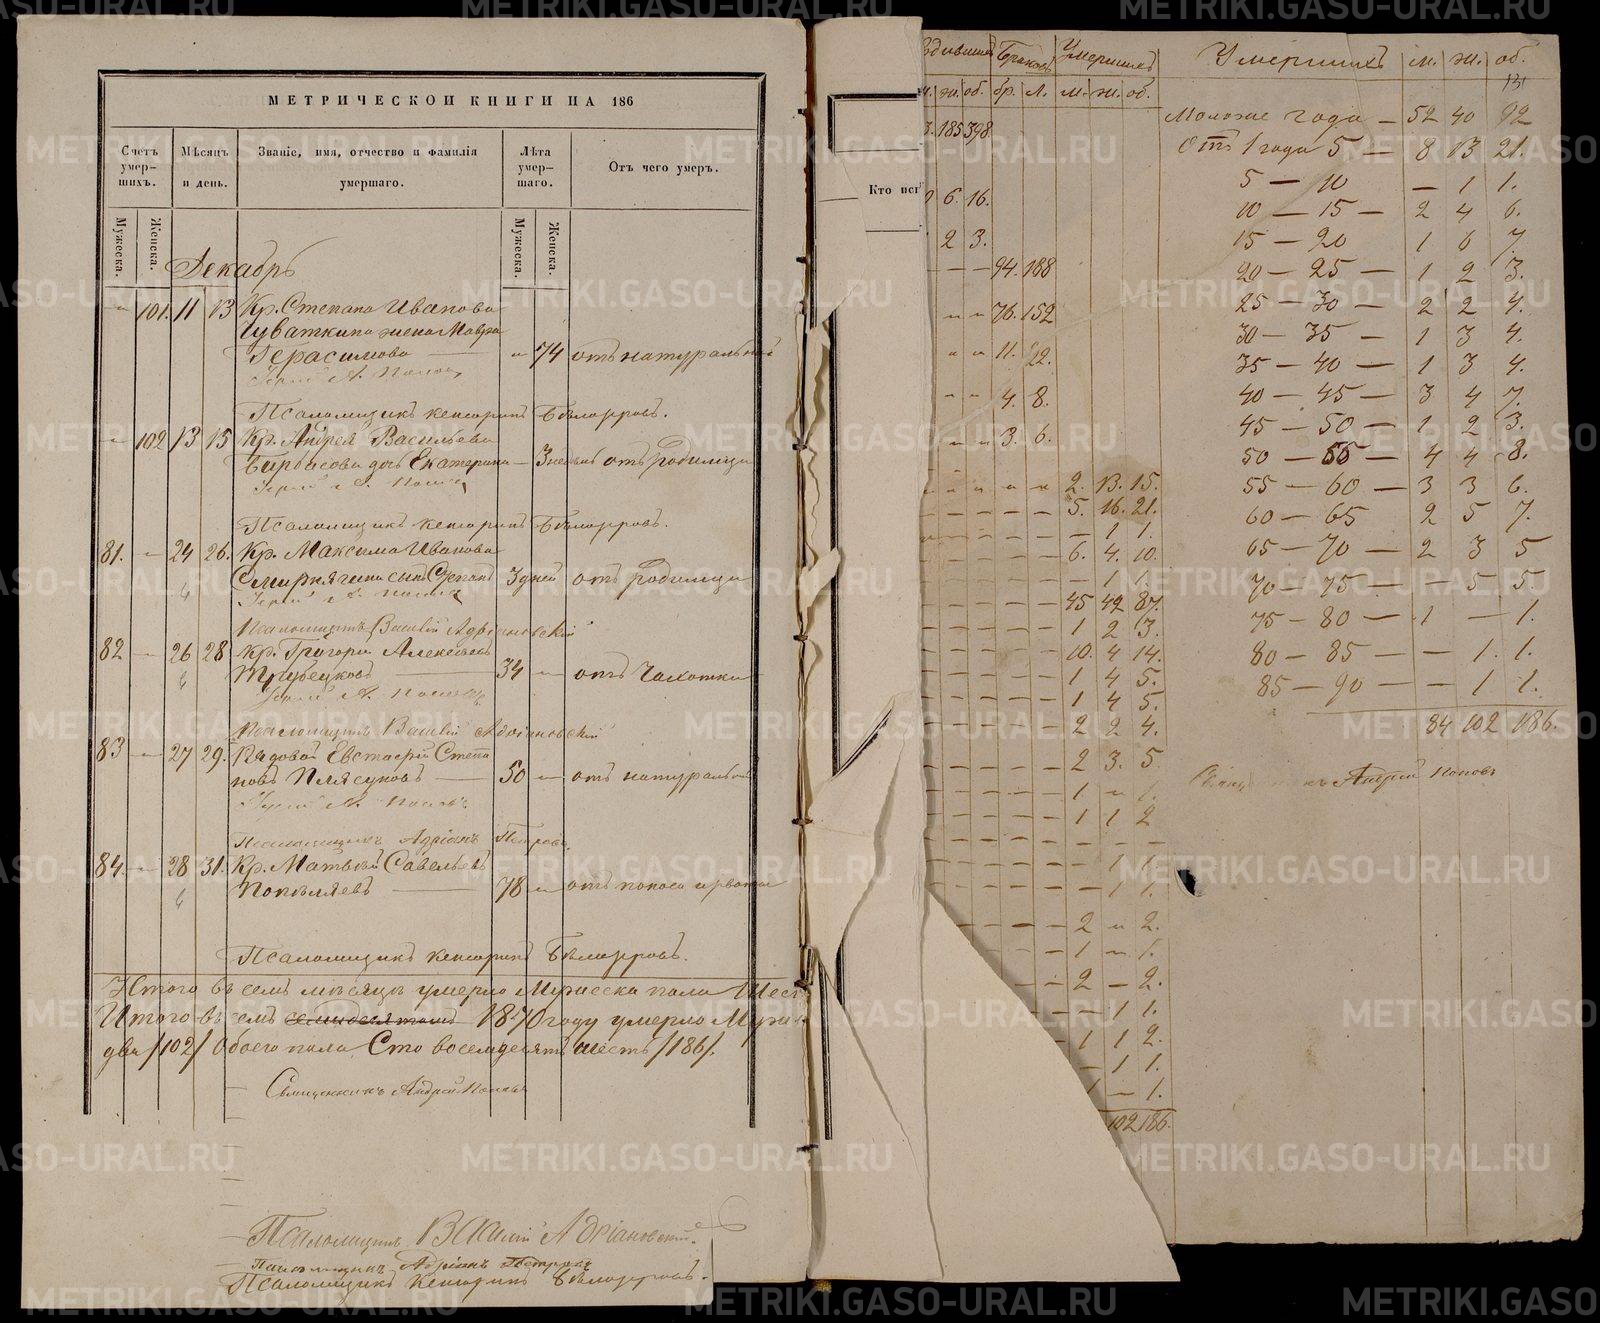 МЕТРИЧЕСКОЙ КНИГИ НА 186
Счетъ умер-шихъ.
Мужеска. Женска.
Мѣсяцъ и день.
Званіе, имя, отчество и фамилія умершаго.
Лѣта умер-шаго.
Мужеска. Женска.
Отъ чего умеръ.
Декабрь
101. 11 13 Кр. Степана Иванова
Чуваткина жена Мавра
Герасимова — 74 отъ натуральной
Псаломщикъ Кенсоринъ Бѣлозеровъ.
102 13 15 Кр. Андрея Васильева
дочь Екатерина — 3 отъ родимца
Псаломщикъ Кенсоринъ Бѣлозеровъ.
81. 24 26. Кр. Максима Иванова
Смирнягина сынъ Степанъ 3 дней отъ родимца
Псаломщикъ Василій Адріановскій
82 26 28 Кр. Григорій Алексѣевъ
Трубецковъ — 34 отъ чахотки
Псаломщикъ Василій Адріановскій
83 27 29. Рядовой Евстафій Степа
новъ Плясуновъ — 50 отъ натуральной
Псаломщикъ Адріанъ Петровъ
84. 28 31. Кр. Матвей Савельевъ
— 78 отъ поноса и рвоты
Псаломщикъ Кенсоринъ Бѣлозеровъ.
Итого въ семъ мѣсяцѣ умерло Мужеска пола Шест
Итого въ семъ 1870 году умерло Муж
два /102/ Обоего пола Сто восемдесятъ шесть /186/.
Священникъ Андрей Поповъ
Псаломщикъ Василій Адріановскій.
Псаломщикъ Адріанъ Петровъ
Псаломщикъ Кенсоринъ Бѣлозеровъ.
Кто исп
Браковъ Умершихъ
ж. об. бр. л. м. ж. об.
185 398
6. 16.
2 3.
94. 188
76. 152
11. 22.
4. 8.
3. 6.
2. 13. 15.
5. 16. 21.
1 1.
6. 4. 10.
1 1.
45 42 87.
1 2 3.
10. 4 14.
1 4 5.
1 4 5.
2 2 4.
2 3. 5.
1 1.
1 1 2
1 1.
1 1.
2 2.
1 1.
2 — 2.
1 1.
1 1 2.
1 1.
1 — 1.
102 186.
Умершихъ м. ж. об.
131
Моложе года — 52 40 92
Отъ 1 года 5 — 8 13 21.
5 — 10 — 1 1.
10 — 15 — 2 4 6.
15 — 20 1 6 7.
20 — 25 — 1 2 3.
25 — 30 — 2 2 4.
30 — 35 — 1 3 4.
35 — 40 — 1 3 4.
40 — 45 — 3 4 7.
45 — 50 — 1 2 3.
50 — 55 — 4 4 8.
55 — 60 — 3 3 6.
60 — 65 2 5 7.
65 — 70 — 2 3 5
70 — 75 — — 5 5
75 — 80 — 1 — 1.
80 — 85 — — 1. 1.
85 — 90 — — 1 1.
84 102 186.
Андрей Поповъ
METRIKI.GASO-URAL.RU